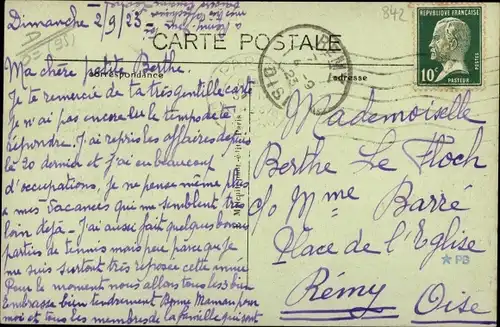 Dimanche 2/9/23
CARTE POSTALE
Correspondance
adresse
842
RÉPUBLIQUE FRANÇAISE
10c
POSTES
PASTEUR
Ma chère petite Berthe.
Je te remercie de ta très gentille carte
Je n'ai pas encore eu le temps de te
répondre. J'ai repris les affaires depuis
le 20 dernier et j'ai eu beaucoup
d'occupations, je ne pense même plus
à mes vacances qui me semblent très
loin déjà - J'ai aussi fait quelques bonnes
parties de tennis mais peu parce que je
me suis surtout très reposée cette année
Pour le moment nous allons tous bien
Embrasse bien tendrement Bonne Maman pour
moi et tous les membres de la famille qui sont
Mademoiselle
Berthe Le Floch
c/o Mme Barré
Place de l'Eglise
Rémy Oise
* PB